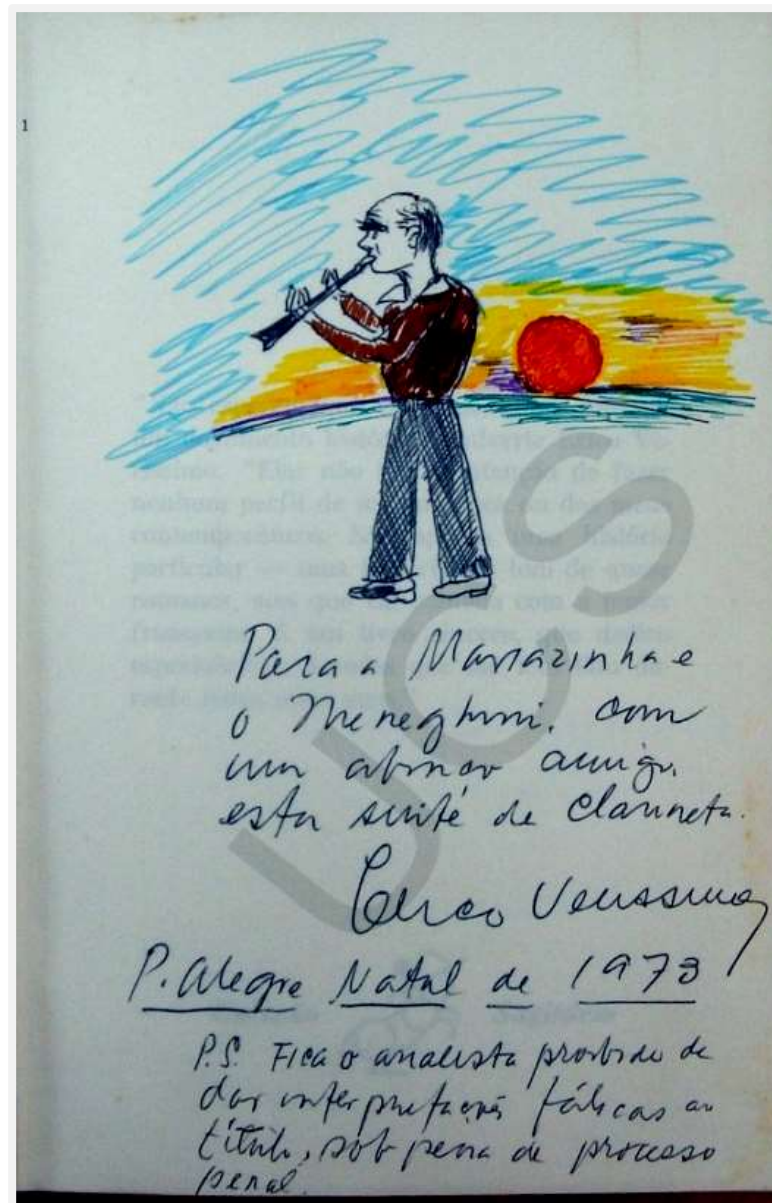 1
Para a Mariazinha e
o Meneghini, com
um abraço amigo,
esta suite de clarineta.
Erico Verissimo
P. Alegre Natal de 1973
P.S. Fica o analista proibido de
dar interpretações fálicas ao
título, sob pena de processo
penal.
UCS